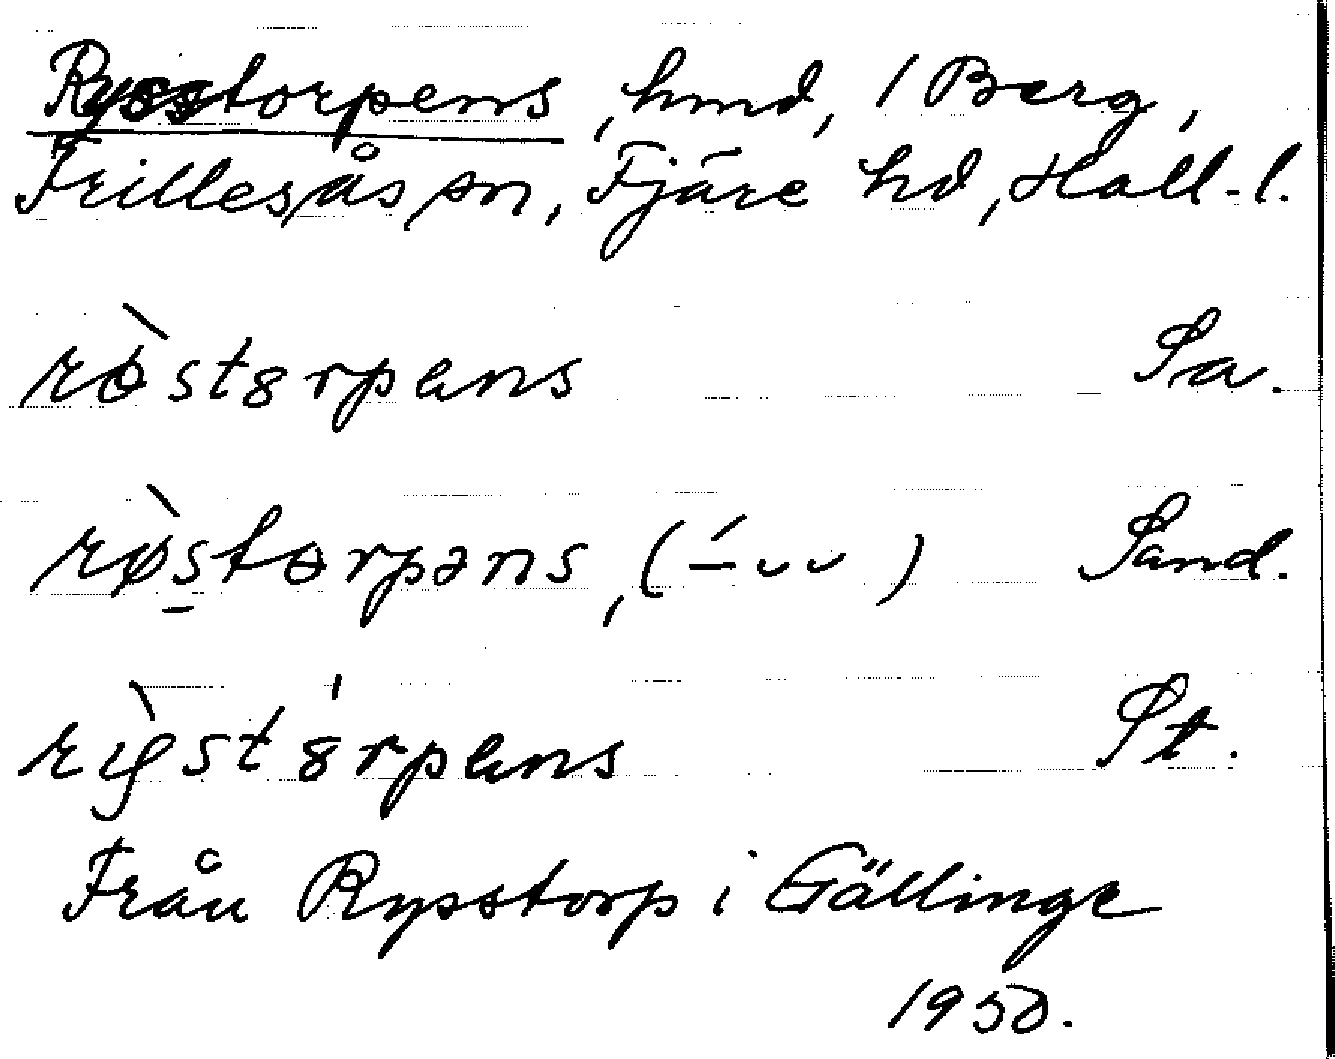 Rysstorpens, hmd, 1 Berg,
Frillesås sn, Fjäre hd, Hall. l.
rø̀stɵrpens Sa.
rø̀storpəns, (–́ ᴗ ᴗ) Sand.
rỳstɵ́rpens St.
Från Rysstorp i Gällinge
1950.